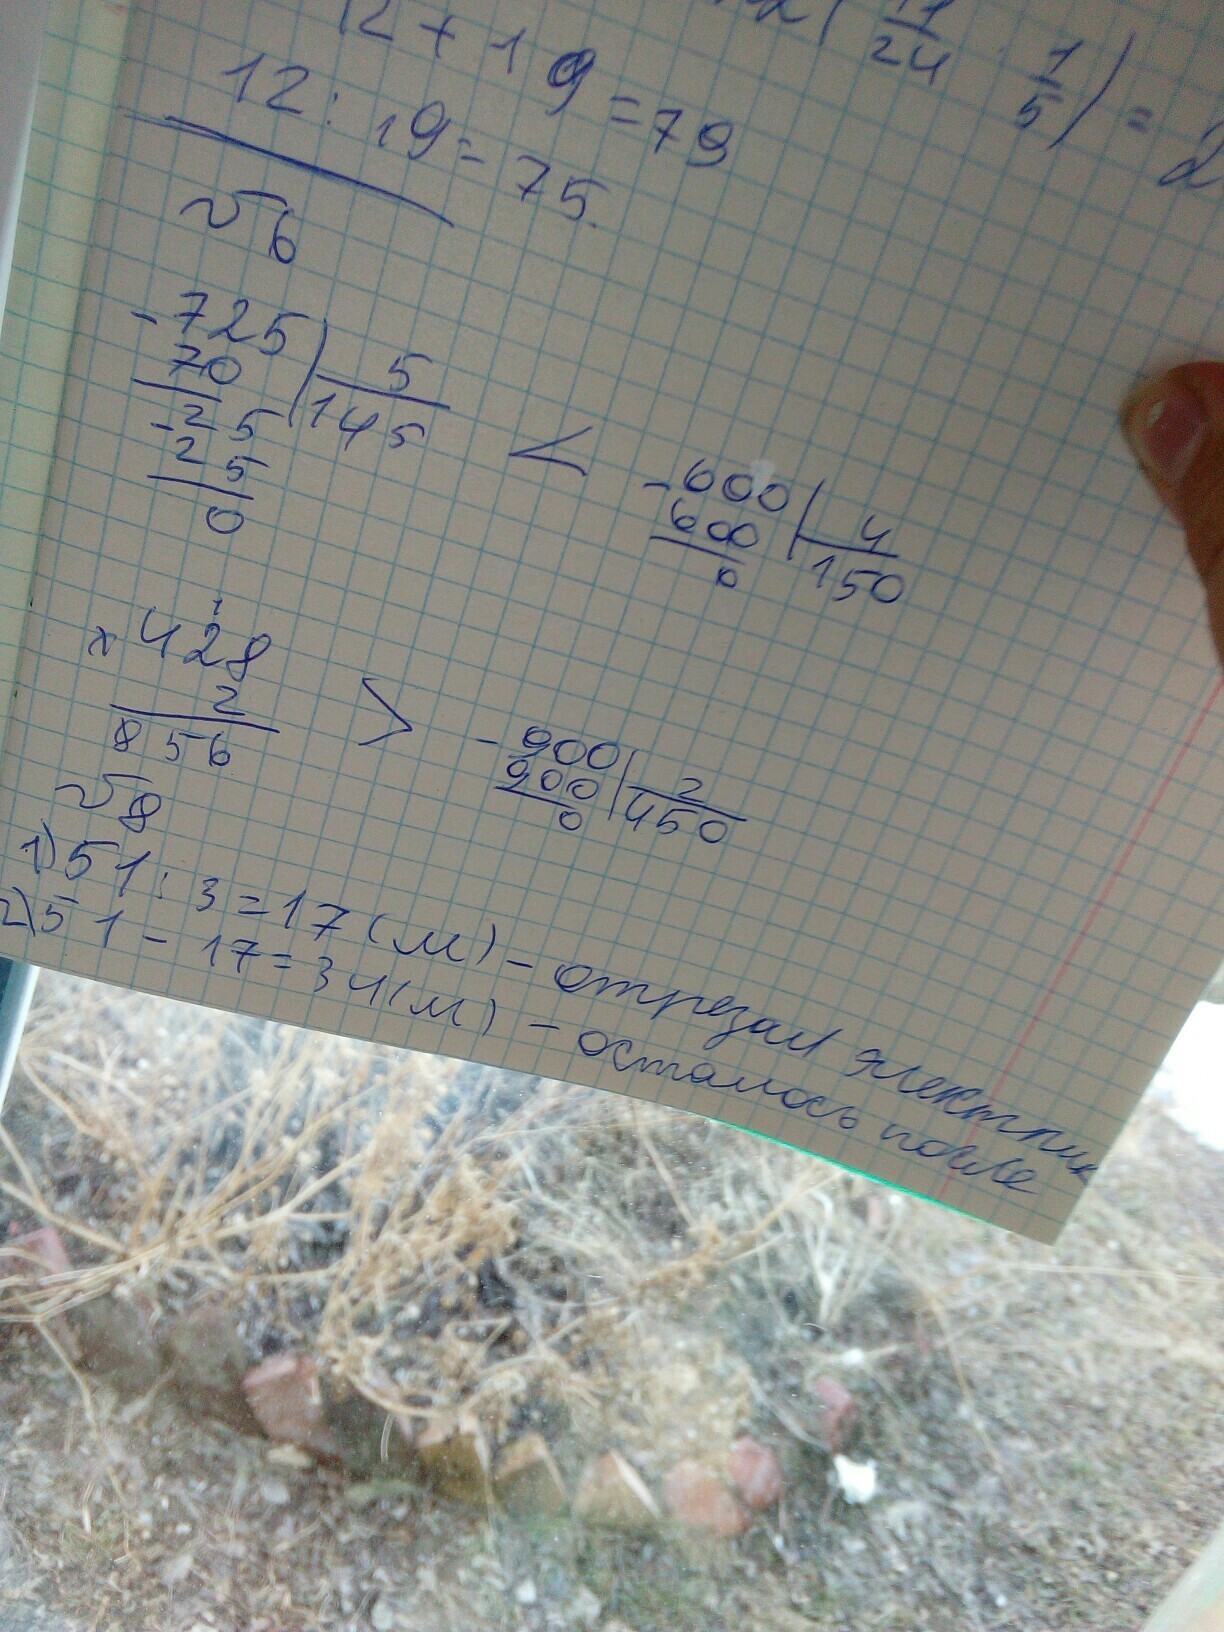 12 + 19 = 79
11/24 1/5) =
12 : 19 = 75.
√6
- 725 | 5
70 | 145
- 25
25
0
<
- 600 | 4
600 | 150
0
1
× 428
2
856
>
- 900 | 2
900 | 450
0
√8
1) 51 : 3 = 17 (м) - отрезал электрик
2) 51 - 17 = 34 (м) - осталось после